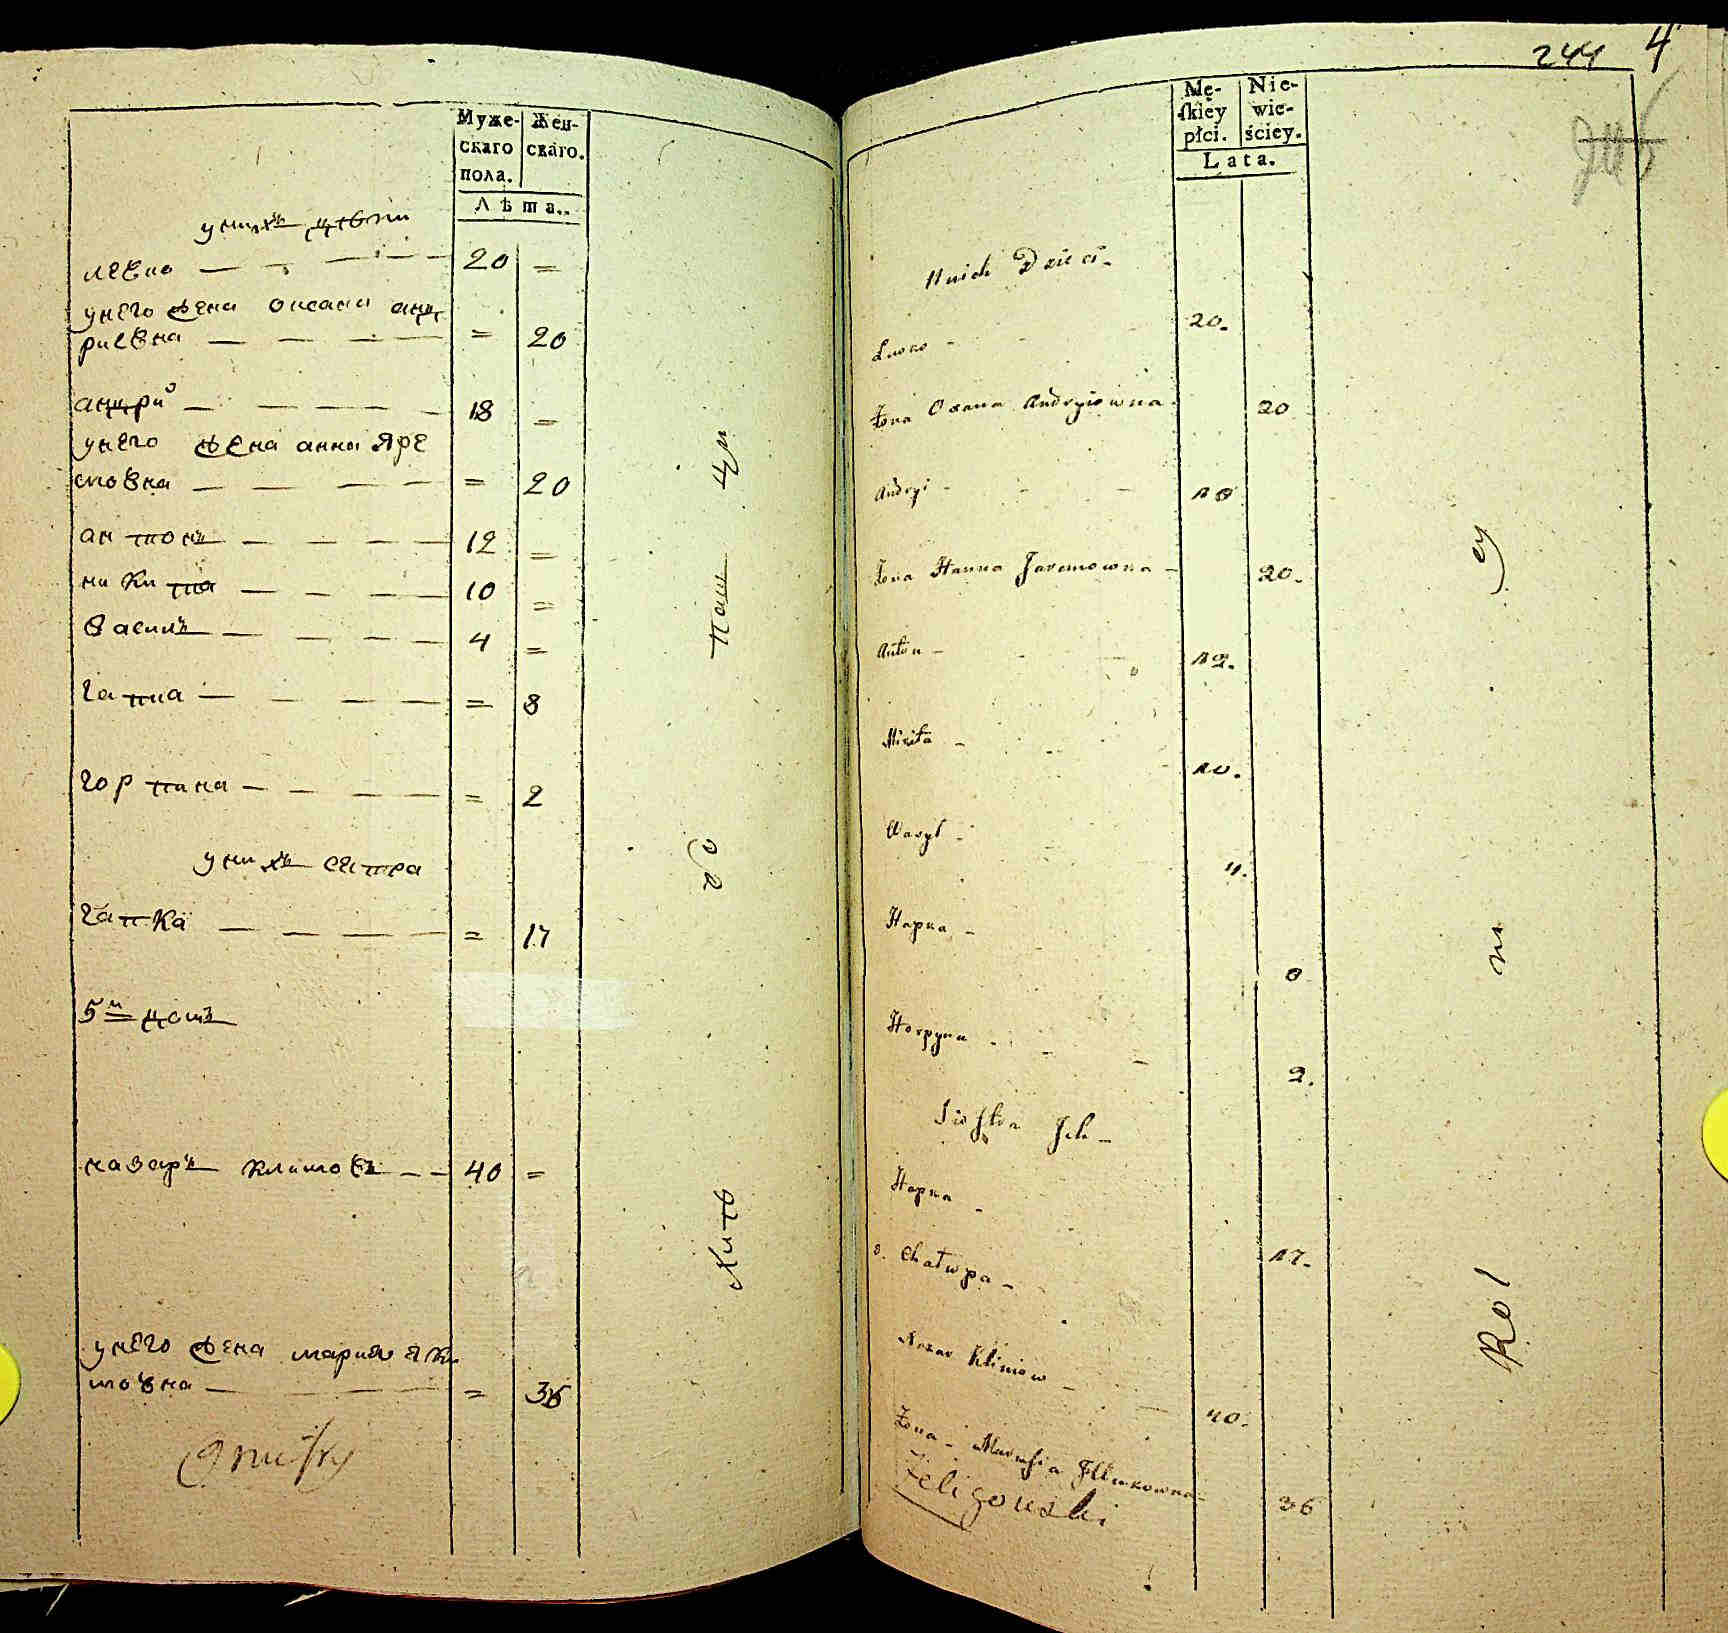 Муже-
скаго
пола.
Жен-
скаго.
Лѣта..
унихъ дѣти
левко — — — 20 =
унего жена оксана анд
риевна — — — = 20
андрий — — — — 18 =
унего жена анна Яре
мовна — — — — = 20
антонъ — — — — 12 =
никита — — — — 10 =
василь — — — — 4 =
гапка — — — — = 8
горпина — — — — = 2
унихъ сестра
гапка — — — — = 17
5й домъ
назаръ климовъ — — 40 =
унего жена мария Яки
мовна — — — = 36
жите
ли
244 4
Mę-
skiey
płci.
Nie-
wie-
ściey.
Lata.
Unich Dzieci -
Lewko - - 20.
Żona Oxana Andryiowna 20
Andryi - - - 18
Żona Hanna Jaremowna - 20.
Anton - - - 12.
Mikita - - 10.
Wasyl - 4.
Hapka - 8
Horpyna - - - 2.
Siostra Ich -
Hapka - 17.
5. Chałupa -
Nazar Klimow - - 40.
Żona - 36
Żeligowski
Rol
m
ey